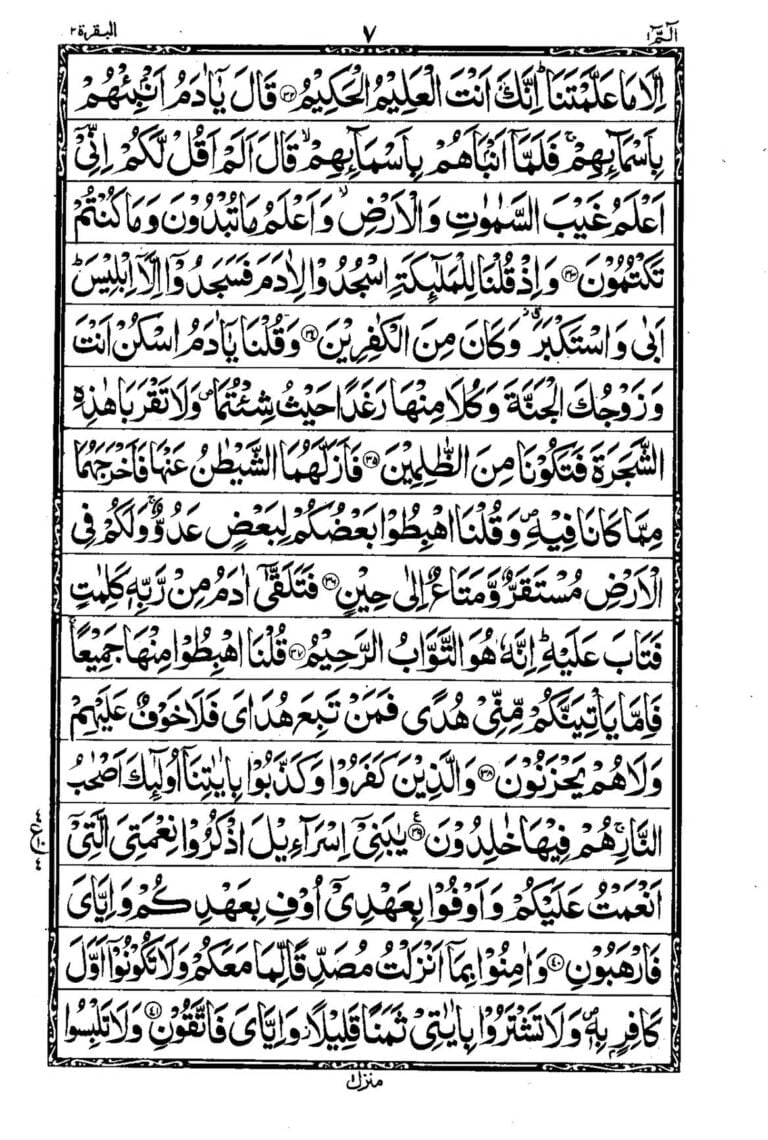 الٓمّٓ ١ ٧ البقرة ٢
اِلَّا مَا عَلَّمْتَنَا ؕ اِنَّكَ اَنْتَ الْعَلِيْمُ الْحَكِيْمُ ﴿۳۲﴾ قَالَ يٰۤاٰدَمُ اَنْۢبِئْهُمْ
بِاَسْمَآىِٕهِمْ ۚ فَلَمَّاۤ اَنْۢبَاَهُمْ بِاَسْمَآىِٕهِمْ ۙ قَالَ اَلَمْ اَقُلْ لَّكُمْ اِنِّيْۤ
اَعْلَمُ غَيْبَ السَّمٰوٰتِ وَالْاَرْضِ ۙ وَاَعْلَمُ مَا تُبْدُوْنَ وَمَا كُنْتُمْ
تَكْتُمُوْنَ ﴿۳۳﴾ وَاِذْ قُلْنَا لِلْمَلٰٓىِٕكَةِ اسْجُدُوْا لِاٰدَمَ فَسَجَدُوْۤا اِلَّاۤ اِبْلِيْسَ ؕ
اَبٰى وَاسْتَكْبَرَ ۫ۗ وَكَانَ مِنَ الْكٰفِرِيْنَ ﴿۳۴﴾ وَقُلْنَا يٰۤاٰدَمُ اسْكُنْ اَنْتَ
وَزَوْجُكَ الْجَنَّةَ وَكُلَا مِنْهَا رَغَدًا حَيْثُ شِئْتُمَا ۪ وَلَا تَقْرَبَا هٰذِهِ
الشَّجَرَةَ فَتَكُوْنَا مِنَ الظّٰلِمِيْنَ ﴿۳۵﴾ فَاَزَلَّهُمَا الشَّيْطٰنُ عَنْهَا فَاَخْرَجَهُمَا
مِمَّا كَانَا فِيْهِ ۪ وَقُلْنَا اهْبِطُوْا بَعْضُكُمْ لِبَعْضٍ عَدُوٌّ ۚ وَلَكُمْ فِي
الْاَرْضِ مُسْتَقَرٌّ وَّمَتَاعٌ اِلٰى حِيْنٍ ﴿۳۶﴾ فَتَلَقّٰۤى اٰدَمُ مِنْ رَّبِّهٖ كَلِمٰتٍ
فَتَابَ عَلَيْهِ ؕ اِنَّهٗ هُوَ التَّوَّابُ الرَّحِيْمُ ﴿۳۷﴾ قُلْنَا اهْبِطُوْا مِنْهَا جَمِيْعًا ۚ
فَاِمَّا يَاْتِيَنَّكُمْ مِّنِّيْ هُدًى فَمَنْ تَبِعَ هُدَايَ فَلَا خَوْفٌ عَلَيْهِمْ
وَلَا هُمْ يَحْزَنُوْنَ ﴿۳۸﴾ وَالَّذِيْنَ كَفَرُوْا وَكَذَّبُوْا بِاٰيٰتِنَاۤ اُولٰٓىِٕكَ اَصْحٰبُ
النَّارِ ۚ هُمْ فِيْهَا خٰلِدُوْنَ ﴿۳۹﴾ ع يٰبَنِيْۤ اِسْرَآءِيْلَ اذْكُرُوْا نِعْمَتِيَ الَّتِيْۤ
اَنْعَمْتُ عَلَيْكُمْ وَاَوْفُوْا بِعَهْدِيْۤ اُوْفِ بِعَهْدِكُمْ وَاِيَّايَ
فَارْهَبُوْنِ ﴿۴۰﴾ وَاٰمِنُوْا بِمَاۤ اَنْزَلْتُ مُصَدِّقًا لِّمَا مَعَكُمْ وَلَا تَكُوْنُوْۤا اَوَّلَ
كَافِرٍۭ بِهٖ ۪ وَلَا تَشْتَرُوْا بِاٰيٰتِيْ ثَمَنًا قَلِيْلًا ؗ وَاِيَّايَ فَاتَّقُوْنِ ﴿۴۱﴾ وَلَا تَلْبِسُوا
منزل ١